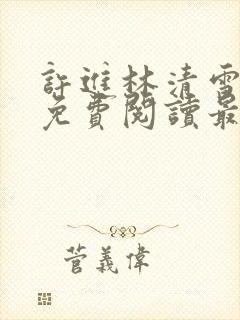 許進林清雪
免費閱讀最
菅義偉